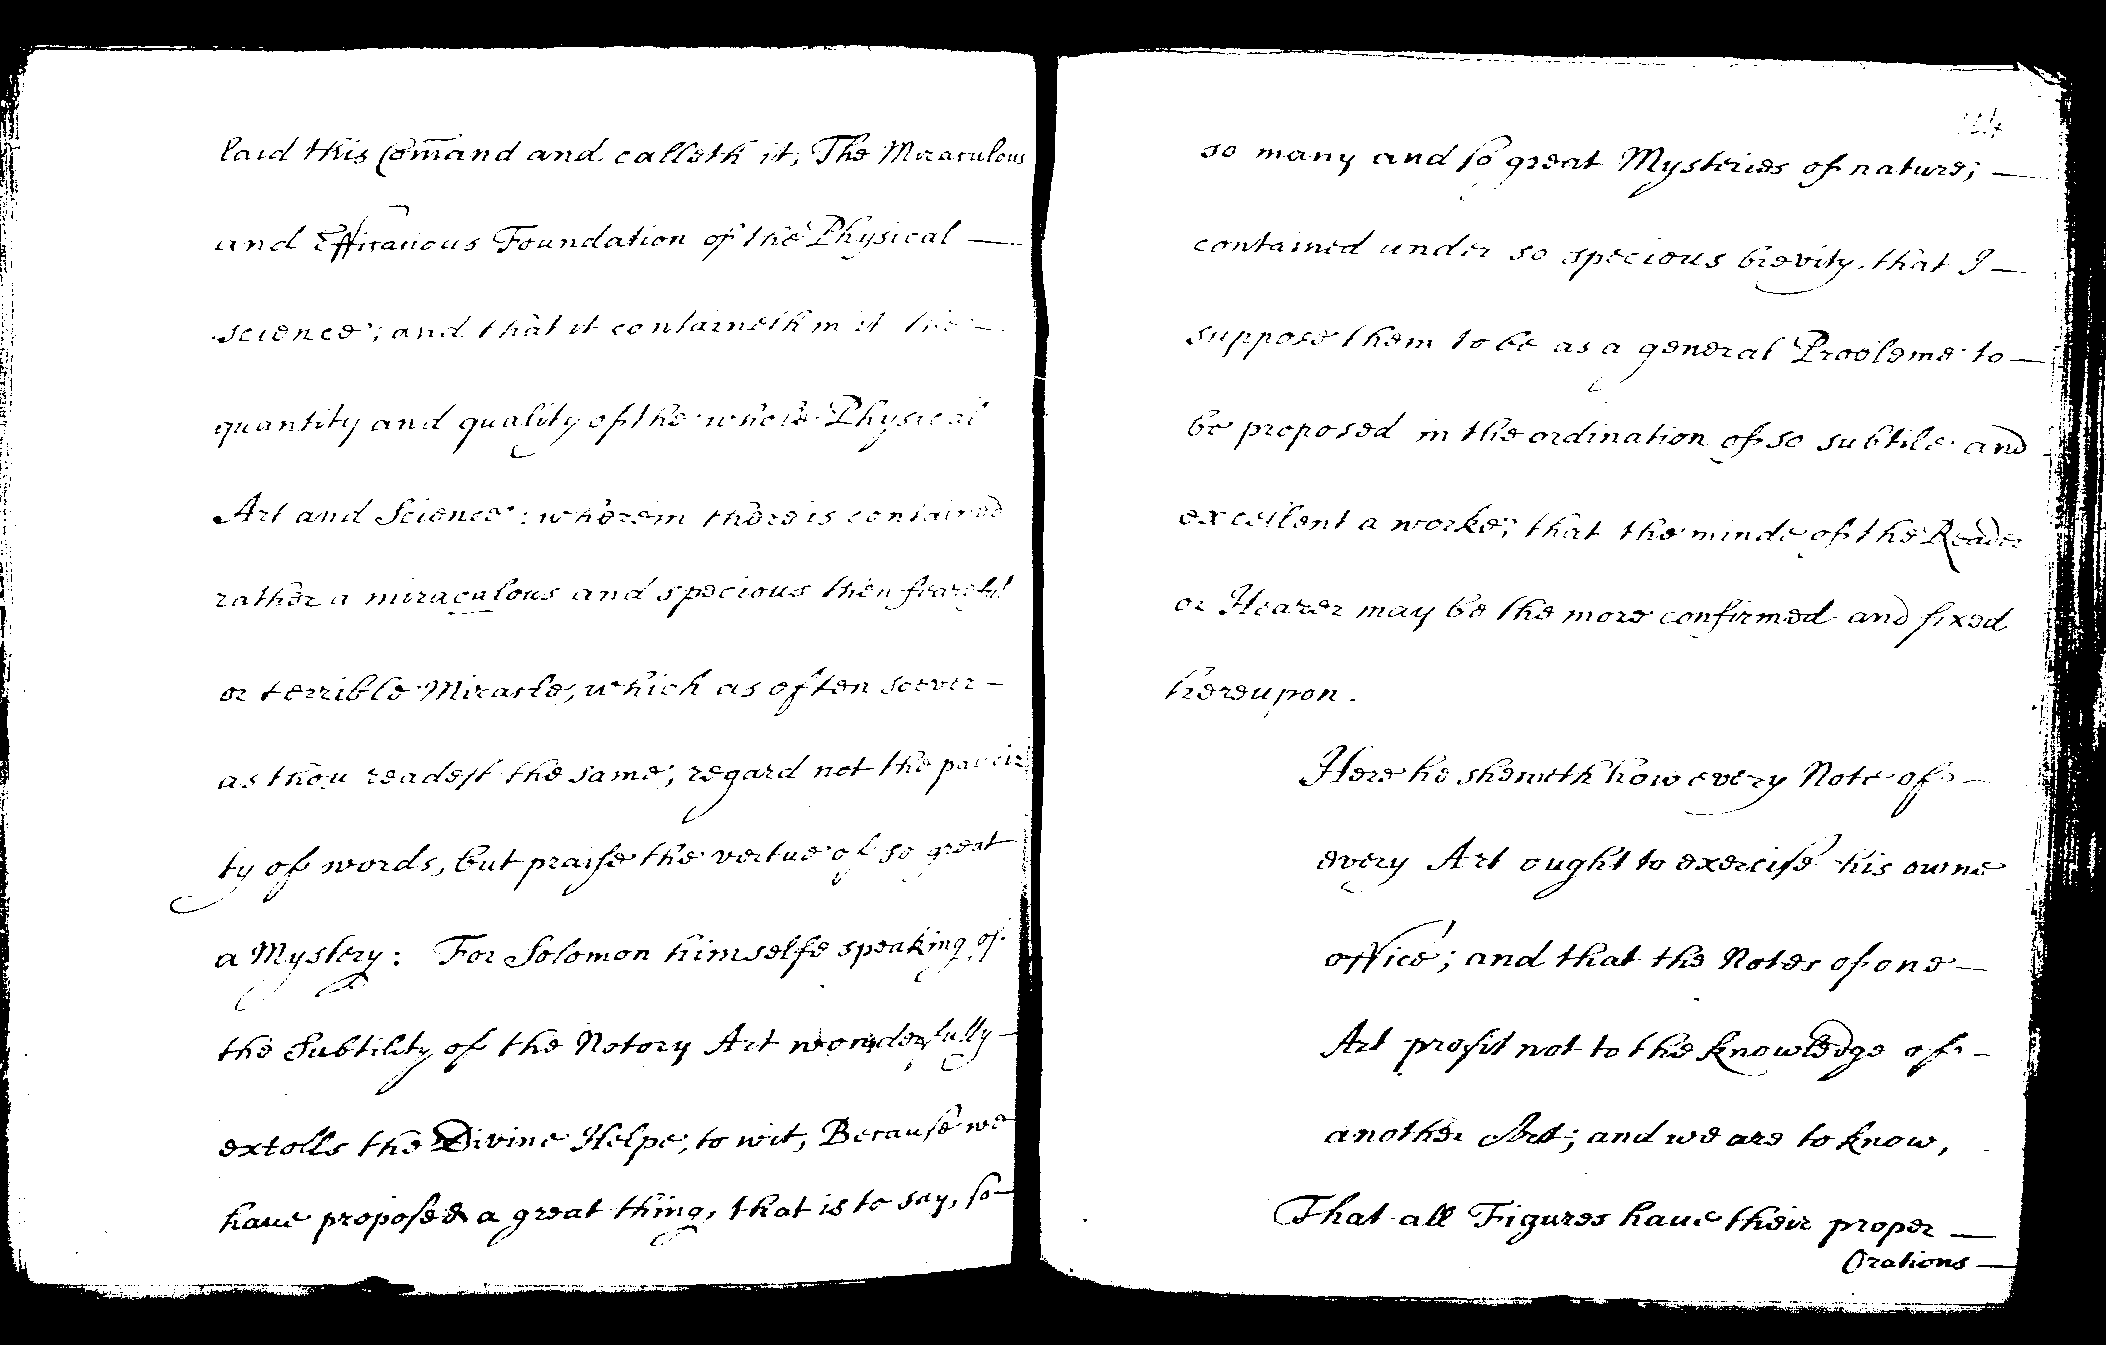 laid this Com̄and and calleth it, The Miraculous
and Efficatious Foundation of the Physical —
science; and that it containeth in it the —
quantity and quality of the whole Physical
Art and Science: wherein there is contained
rather a miraculous and specious then fearefull
or terrible Miracle, which as often soever —
as thou readest the same, regard not the pauci
ty of words, but praise the vertue of so great
a Mystery: For Solomon himselfe speaking of
the Subtility of the Notory Art wonderfully —
extolls the Divine Helpe, to wit, Because we
haue proposed a great thing, that is to say, so —
so many and so great Mysteries of nature; —
contained under so specious brevity, that I —
suppose them to be as a general Probleme to —
be proposed in the ordination of so subtile and
excellent a worke; that the minde of the Reader
or Hearer may be the more confirmed and fixed
hereupon.
Here he sheweth how every Note of —
every Art ought to exercise his owne
office; and that the Notes of one —
Art profit not to the knowledge of —
another Art; and we are to know,
That all Figures haue their proper —
Orations —